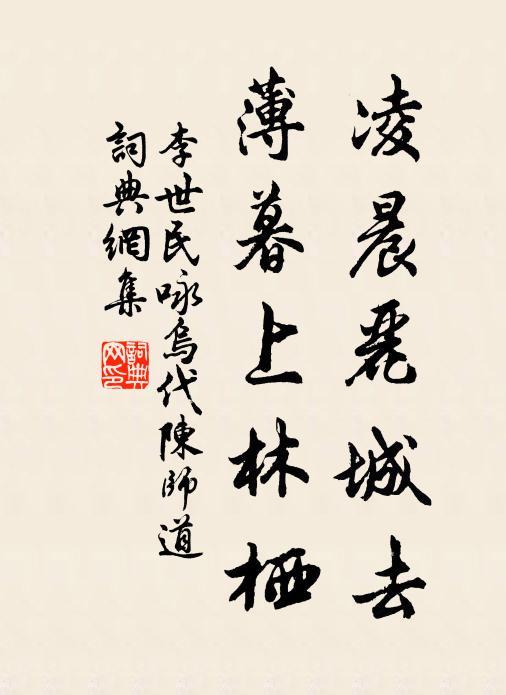 凌晨麗城去
薄暮上林栖
李世民咏烏代陳師道
詞典網集
詞典網印